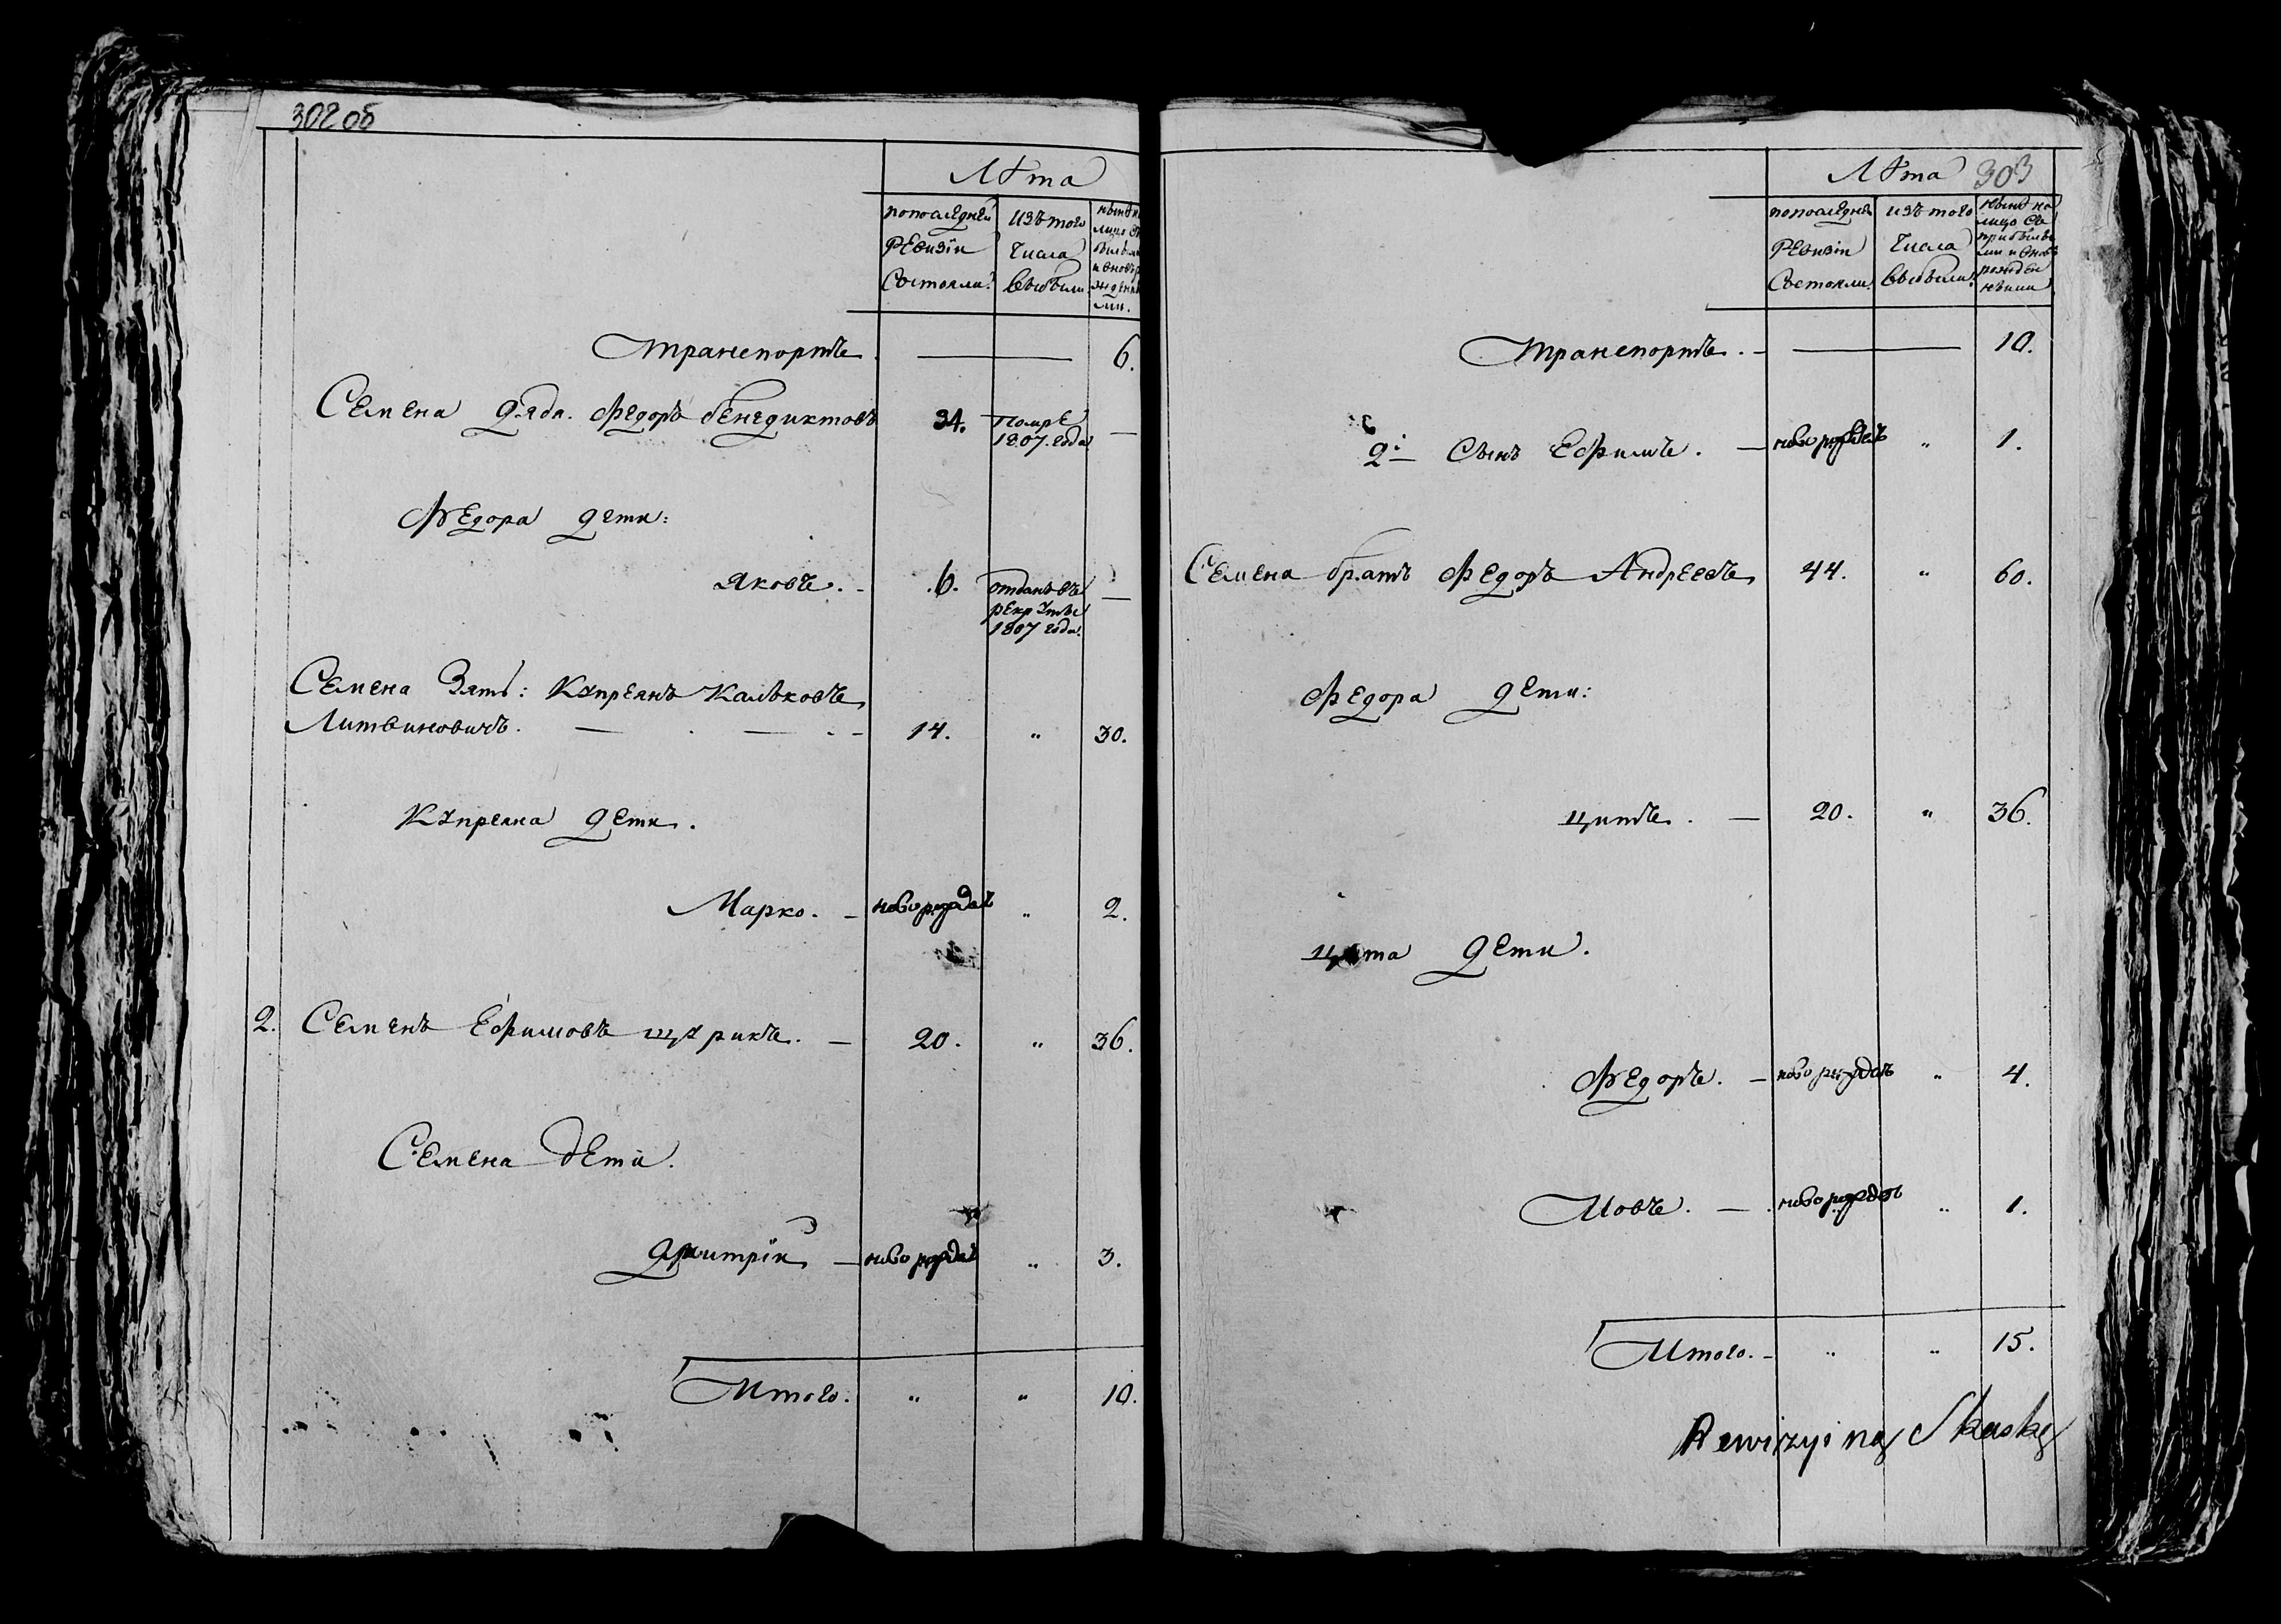 302 об
Лѣта
попослѣдней Ревизіи Состояли.
изъ того Числа выбыли.
Транспортъ. 6.
Семена дядя. Федоръ бенедиктовъ 34. помре 1807. года. —
Федора дети:
Яковъ. - 6. отданъ въ рекруты 1807 года. —
Семена Зять: Купреянъ Кальковъ
Литвиновичъ. — 14. „ 30.
Купреяна дети.
Марко. — новорожденъ „ 2.
2. Семенъ Ефимовъ щурикъ. — 20. „ 36.
Семена дети.
Дмитрій — новорожденъ „ 3.
Итого. „ „ 10.
303
Лѣта
попослѣдней Ревизіи Состояли.
изъ того Числа выбыли.
нынѣ на лицо съ прибылыми и вновь рожденными
Транспортъ. — 10.
2й Сынъ Ефимъ. — новорожденъ „ 1.
Семена братъ Федоръ Андреевъ 44. „ 60.
Федора дети:
цитъ. — 20. „ 36.
цита дети.
Федоръ. — новорожденъ „ 4.
Иовъ. — новорожденъ „ 1.
Итого. - „ „ 15.
Rewizyiną Skaskę